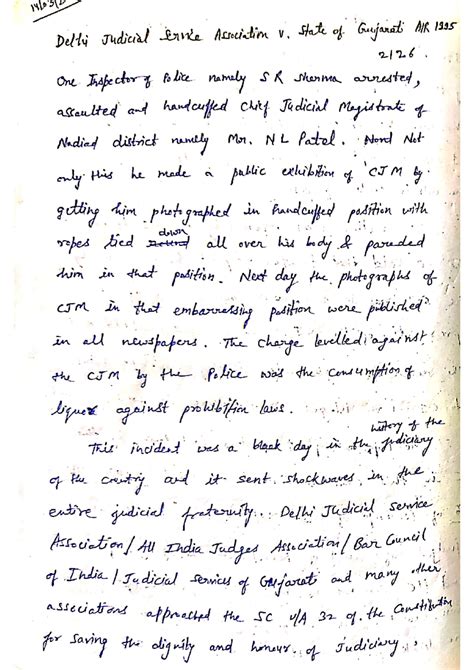 14/03/2
Delhi Judicial Service Association v. State of Gujarati AIR 1995
2126.
One Inspector of Police namely S R Sherma arrested,
assaulted and handcuffed Chief Judicial Magistrate of
Nadiad district namely Mr. N L Patel. Not
only this he made a public exhibition of CJM by
getting him photographed in handcuffed position with
down
ropes tied all over his body & paraded
him in that position. Next day the photographs of
CJM in that embarrassing position were published
in all newspapers. The charge levelled against
the CJM by the Police was the consumption of
liquor against prohibition laws.
history of the
This incident was a black day in the judiciary
of the country and it sent shockwaves in the
entire judicial fraternity. Delhi Judicial Service
Association/ All India Judges Association/ Bar Council
of India / Judicial services of Gujarati and many other
associations approached the SC u/A 32 of the Constitution
for saving the dignity and honour of Judiciary.